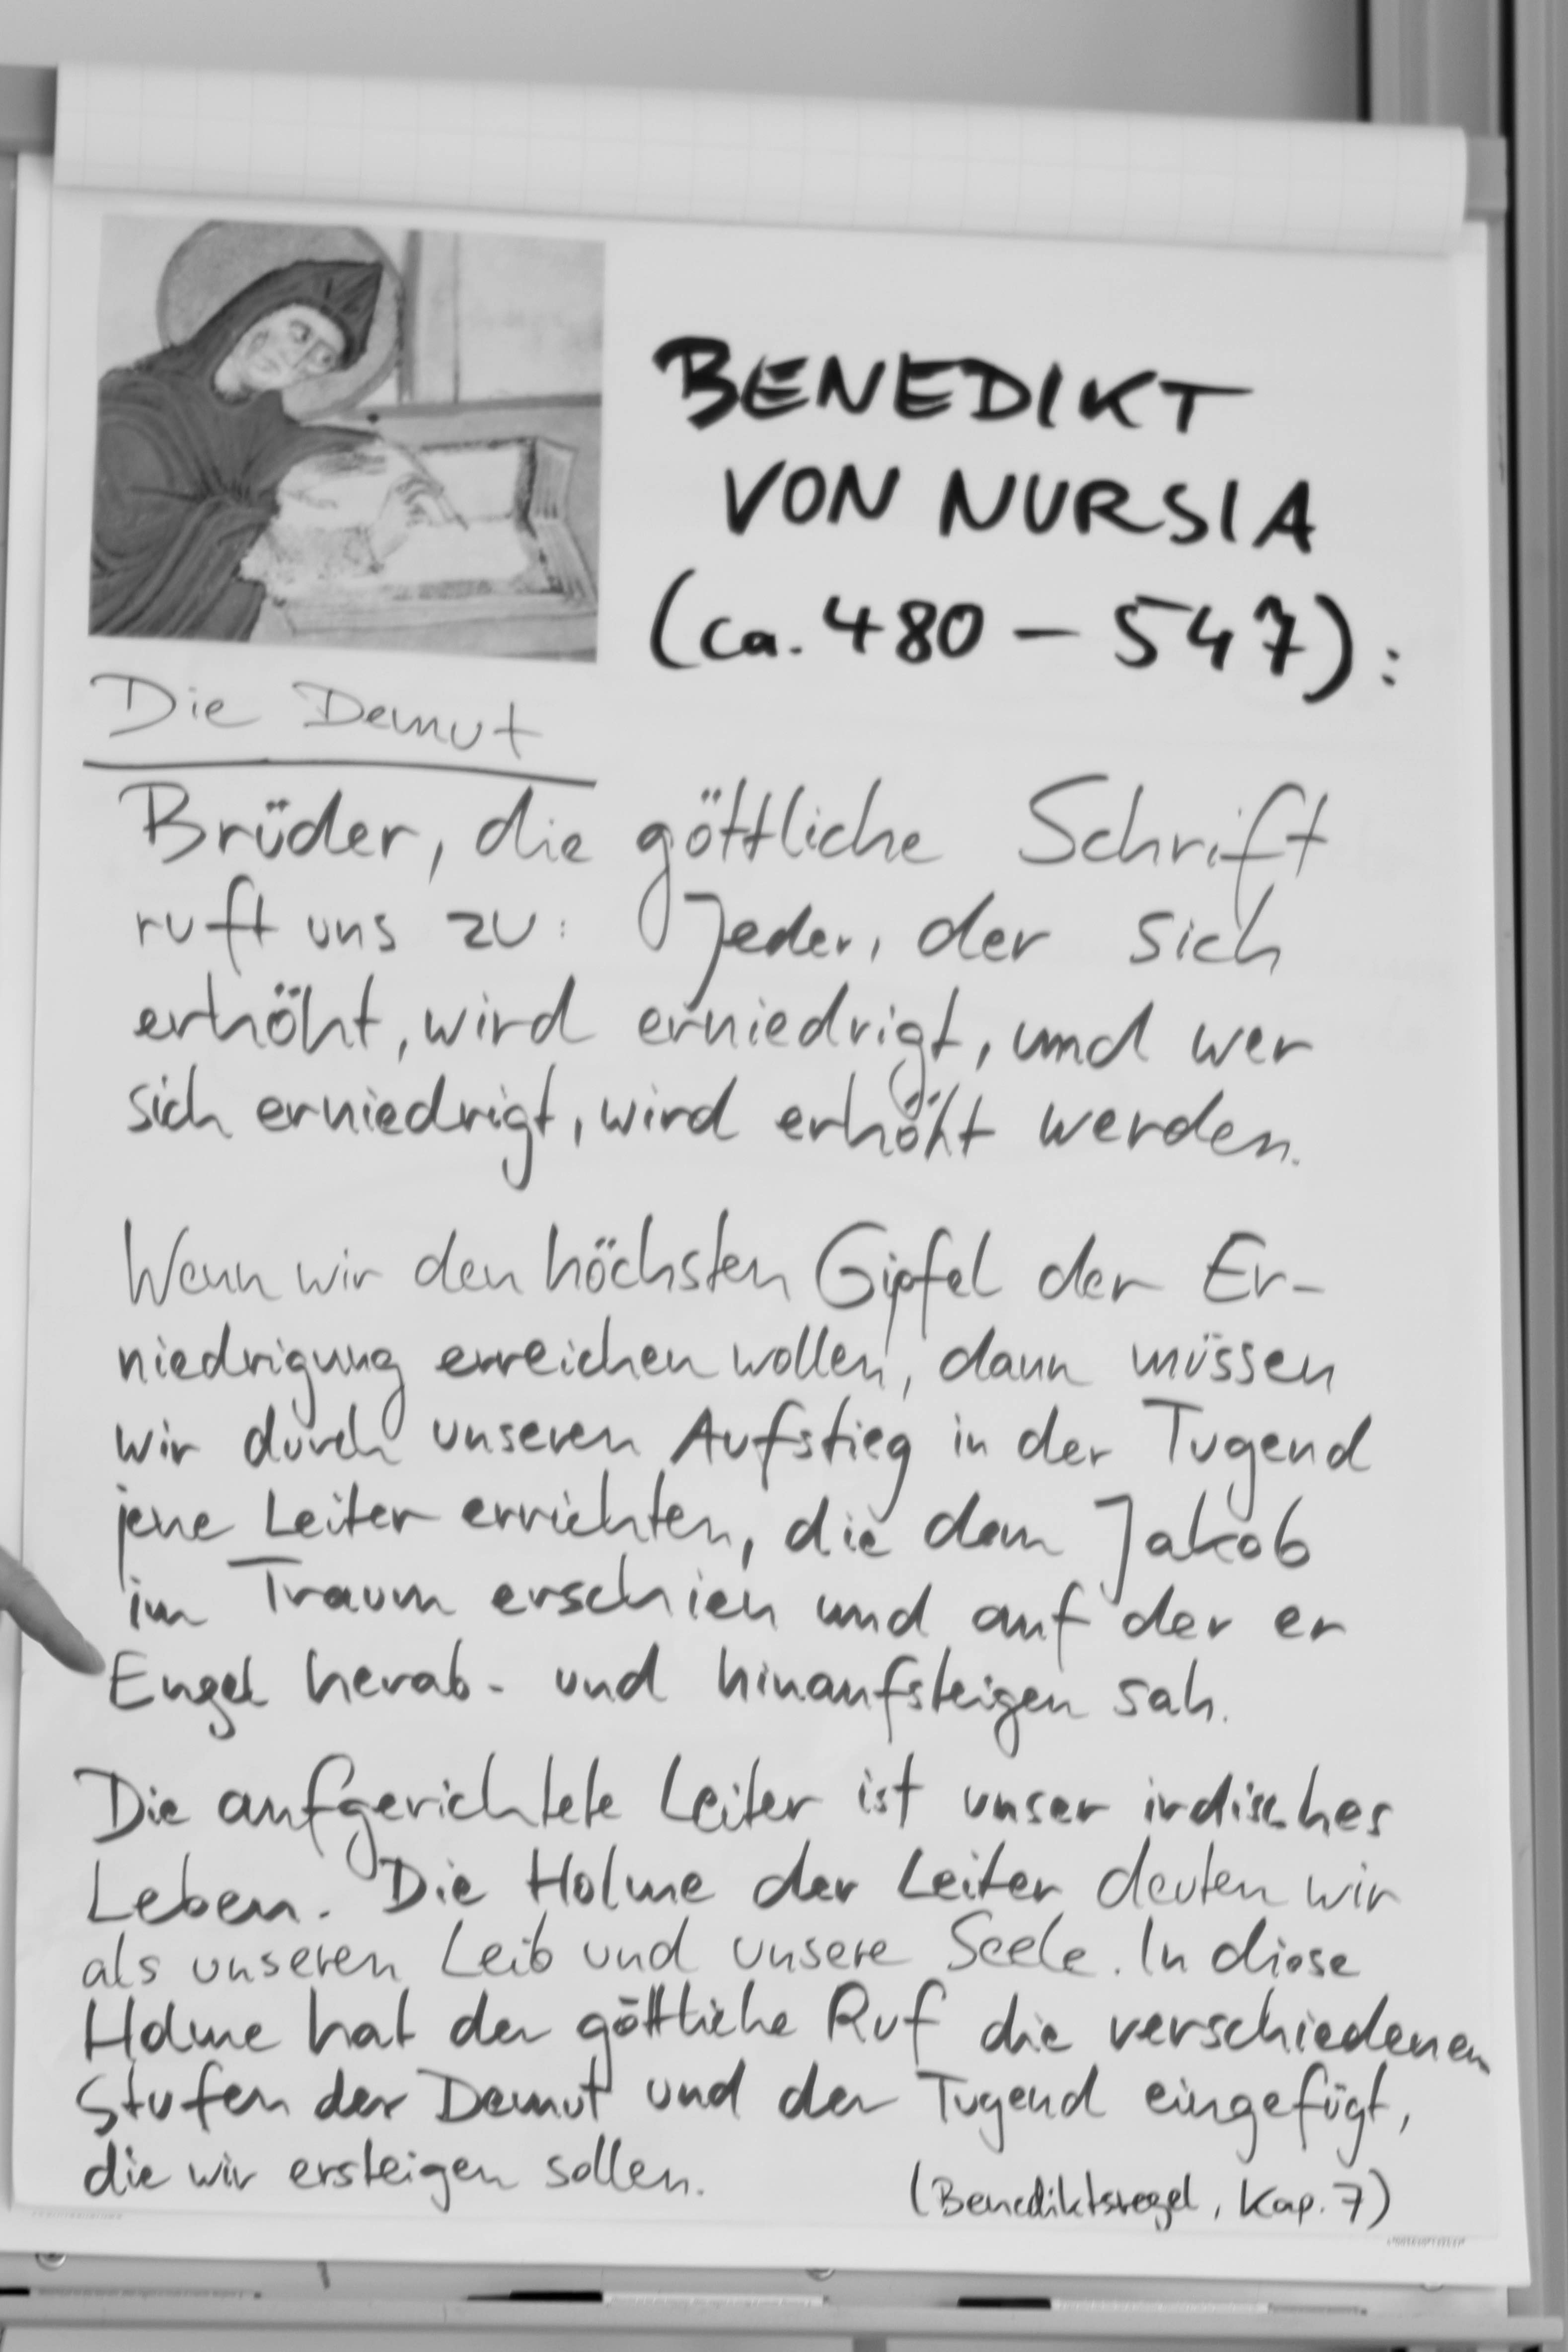 BENEDIKT
VON NURSIA
(ca. 480 – 547):
Die Demut
Brüder, die göttliche Schrift
ruft uns zu: Jeder, der sich
erhöht, wird erniedrigt, und wer
sich erniedrigt, wird erhöht werden.
Wenn wir den höchsten Gipfel der Er-
niedrigung erreichen wollen, dann müssen
wir durch unseren Aufstieg in der Tugend
jene Leiter errichten, die dem Jakob
im Traum erschien und auf der er
Engel herab- und hinaufsteigen sah.
Die aufgerichtete Leiter ist unser irdisches
Leben. Die Holme der Leiter deuten wir
als unseren Leib und unsere Seele. In diese
Holme hat der göttliche Ruf die verschiedenen
Stufen der Demut und der Tugend eingefügt,
die wir ersteigen sollen.
(Benediktsregel, Kap. 7)